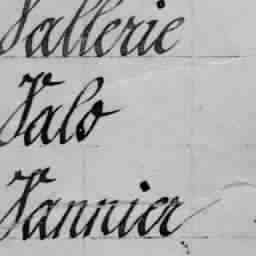 Vallerie
Valo
Vannier